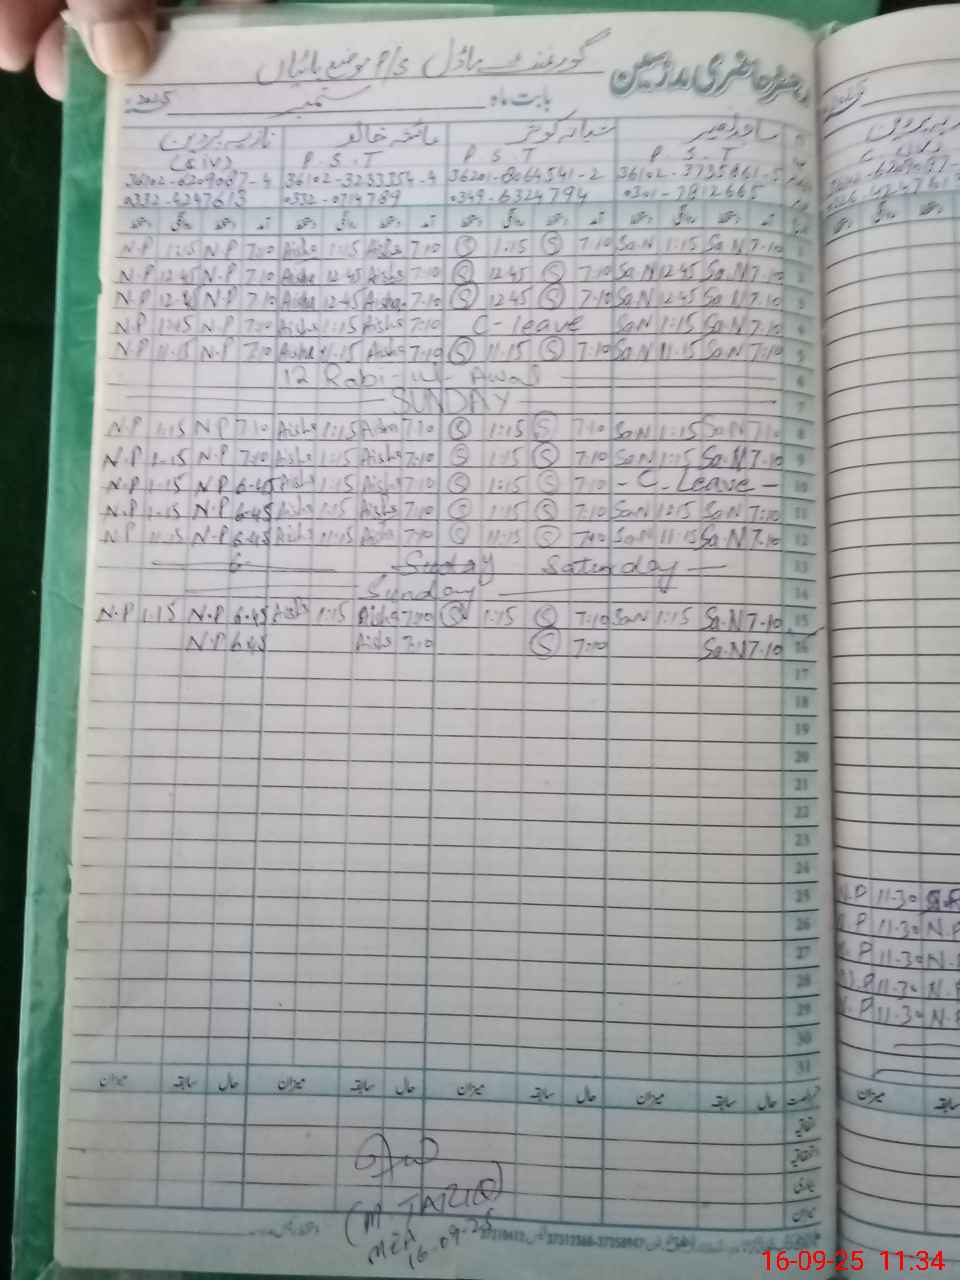 رجسٹر حاضری مدرسین گورنمنٹ ماڈل P/S موضع
بابت ماہ ستمبر 2025ء
ساجدہ نصیر شبانہ کوثر عائشہ خالد نازیہ پروین
P.S.T P.S.T P.S.T (S.I.V)
36102-3735861-5 36201-8064541-2 36102-3233354-4 36102-6209087-4
0301-7812665 0349-6324794 0332-0714789 0332-4247613
N.P 1:15 N.P 7:10 Aisha 1:15 Aisha 7:10 S 1:15 S 7:10 Sa.N 1:15 Sa.N 7.10 1
N.P 12:45 N.P 7:10 Aisha 12:45 Aisha 7:10 S 12:45 S 7:10 Sa.N 12:45 Sa.N 7.10 2
N.P 12:45 N.P 7:10 Aisha 12-45 Aisha 7.10 S 12:45 S 7:10 Sa.N 12:45 Sa.N 7.10 3
N.P 1:15 N.P 7:10 Aisha 1:15 Aisha 7.10 C-leave Sa.N 1:15 Sa.N 7.10 4
N.P 11.15 N.P 7:10 Aisha 11.15 Aisha 7:10 S 11.15 S 7:10 Sa.N 11.15 Sa.N 7:10 5
12 Rabi-ul-Awal 6
SUNDAY 7
N.P 1:15 N.P 7:10 Aisha 1:15 Aisha 7.10 S 1:15 S 7:10 Sa.N 1:15 Sa.N 7.10 8
N.P 1-15 N.P 7:10 Aisha 1:15 Aisha 7:10 S 1:15 S 7:10 Sa.N 1:15 Sa.N 7.10 9
N.P 1-15 N.P 6.45 Aisha 1:15 Aisha 7:10 S 1:15 S 7:10 - C.Leave - 10
N.P 1-15 N.P 6.45 Aisha 1:15 Aisha 7:10 S 1:15 S 7:10 Sa.N 1:15 Sa.N 7:10 11
N.P 11.15 N.P 6.45 Aisha 11:15 Aisha 7:10 S 11:15 S 7:10 Sa.N 11.15 Sa.N 7.10 12
Sunday Saturday 13
Sunday 14
N.P 1.15 N.P 6.45 Aisha 1:15 Aisha 7:10 S 1:15 S 7:10 Sa.N 1:15 Sa.N 7.10 15
N.P 6.45 Aisha 7:10 S 7:10 Sa.N 7.10 16
17
18
19
20
21
22
23
24
25
26
27
28
29
30
31
حال سابقہ میزان حال سابقہ میزان حال سابقہ میزان حال سابقہ میزان
(M TARIQ)
MEA
16-09-25
N.P 11-30
P 11-30 N.P
P 11-30 N.
N.P 11-30 N.P
N.P 11-30 N.P
16-09-25 11:34